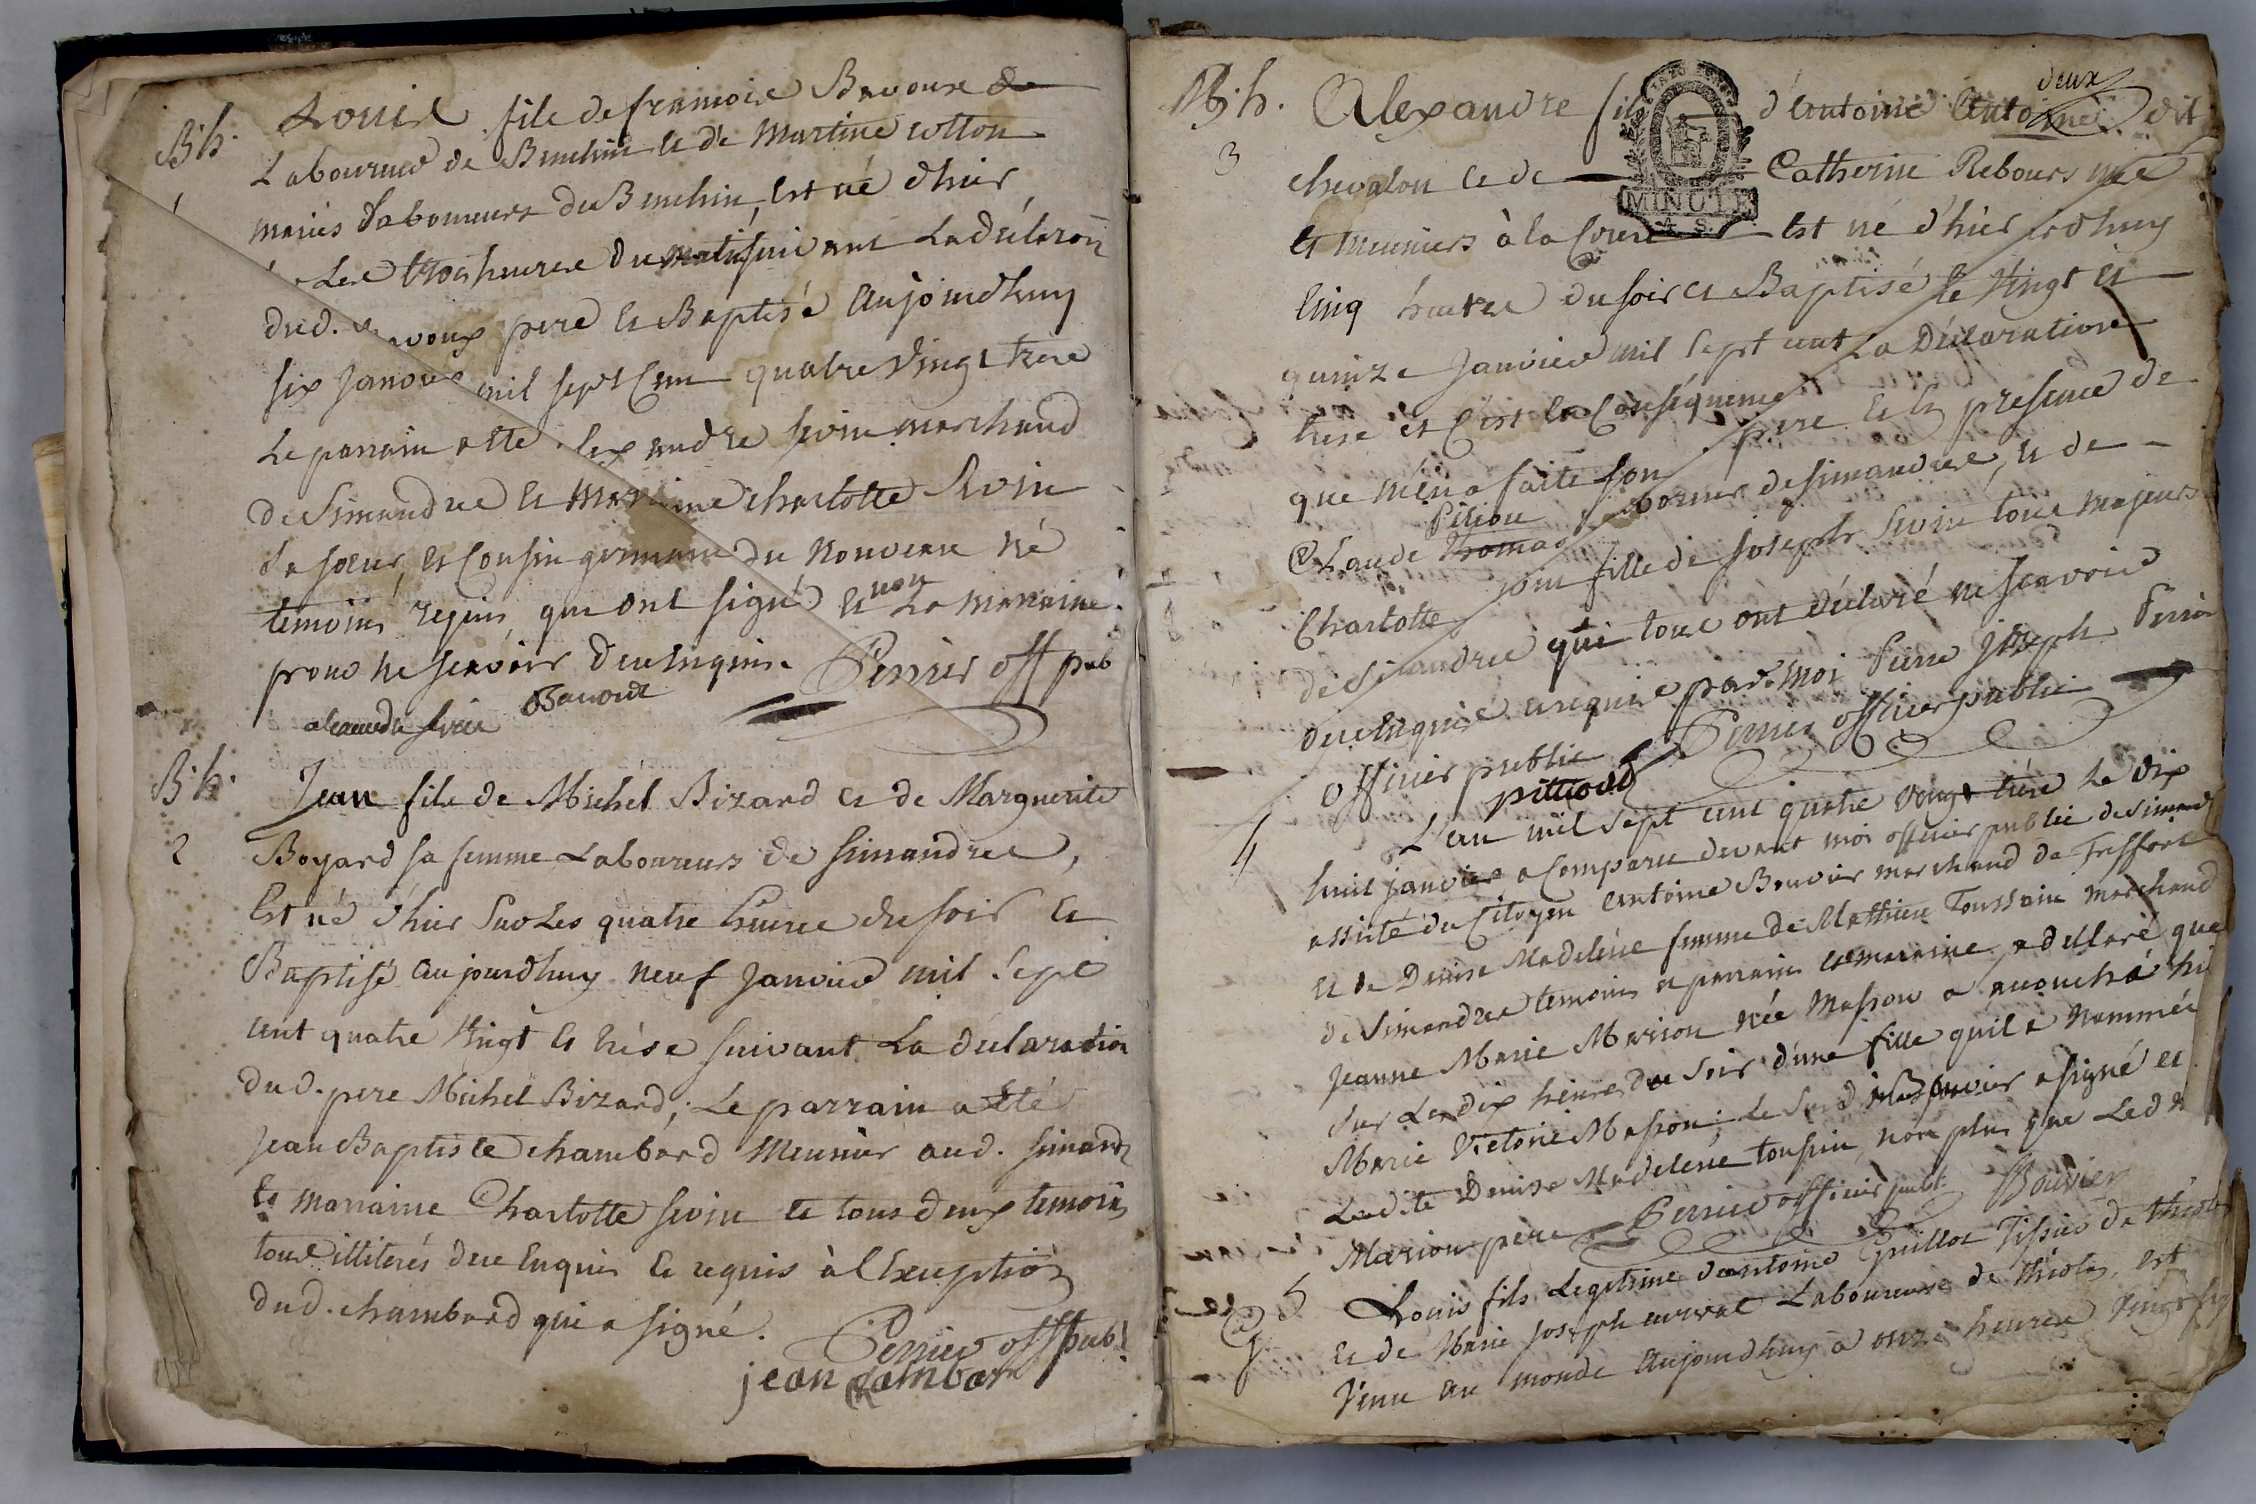 B. h.
Louis fils de francois Bavoux
Laboureur de Bruchin et de Martine cotton
mariés Laboureurs du Bruchin, Est né d'hier
Les trois heures du matin suivant La déclaraõn
dud. Bavoux pere et Baptisé aujourdhuy
six Janvier mil sept Cent quatre Vingt treise
Le parrain a été alexandre sevin marchand
De Simandre et Marraine charlotte Sevin
Sa soeur, et Cousin germain du Nouveau Né
temoins requis qui ont signé et non La marraine
pour ne scavoir de ce Enquis.
Perrier off pub
alexandre sevin Bavoux
B. h.
2
Jean fils de Michel Bizard et de Marguerite
Boyard sa femme Laboureurs de simandre,
Est né d'hier Sur Les quatre heures du soir et
Baptisé aujourdhuy neuf Janvier mil sept
cent quatre Vingt et treise suivant La declaration
dud. pere Michel Bizard; Le parrain a été
Jean Baptiste chambard Meunier aud. simandre
et marraine Charlotte sevin et tous deux temoins
tous illiterés de ce Enquis et requis à l'Exception
dud. chambard qui a signé.
Perrier off pub.
jean chambar
B. h.
3
Alexandre fils d'antoine antoine deux dit
MINUTE
chevalon et de Catherine Rebours
et Meuniers à la Est né d'hier
Cinq heures du soir et Baptisé le Vingt et
quinze Janvier mil sept cent La Déclaration
treise et C'est en Conséquence
que m'en a faite son pere et En presence de
Claude Thomas Piliou borner de simandre, et de
Charlotte fille de Joseph Sevin tous Majeurs
de Simandre qui tous ont déclaré ne scavoir
de ce Enquis et requis par moi Pierre Joseph Perrier
officier public Perrier officier public
4
L'an mil sept cent quatre Vingt treise Le dix
huit janvier a Comparu devant moi officier public de Simandre
assisté du Citoyen antoine Bouvier marchand de Treffort
et de Denise Madelene femme de Mathieu Toussain marchand
de Simandre temoins et parrain et marraine, a declaré que
Jeanne Marie Marion née Masson a accouché hier
Sur Les dix heures du Soir d'une fille qu'il a Nommée
Marie Victoire Masson; Le Sus d. Bouvier a signé et
Ladite Denise Madelene tousain, non plus que Led.
Marion pere Perrier officier publ. Bouvier
5
Louis fils Legitime d'antoine Guillot Tissier de
et de Marie Joseph Laboureurs de est
Venu au monde aujourdhuy à onze heures